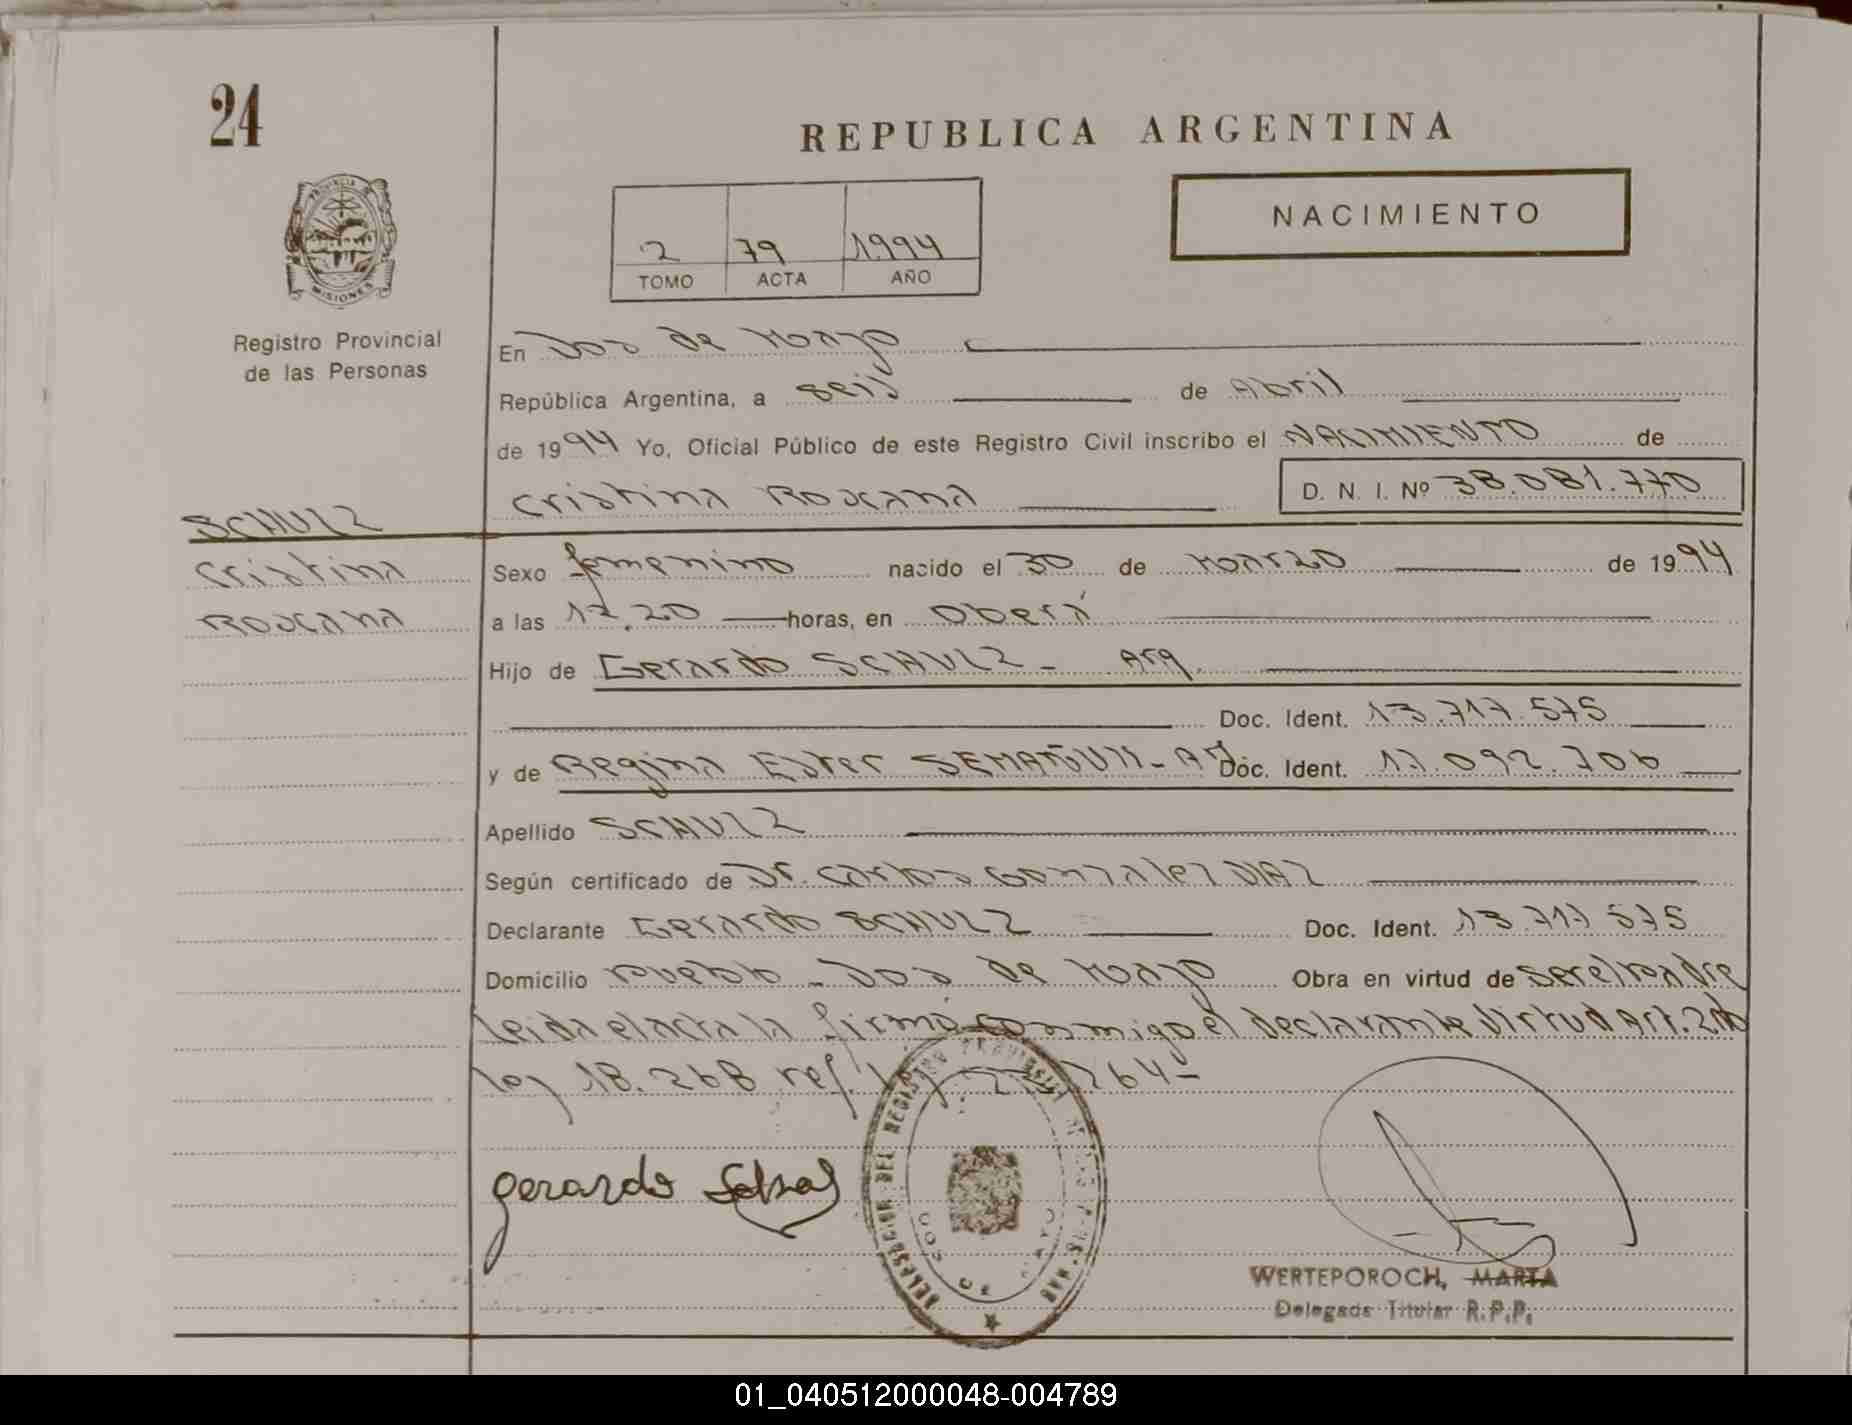 24
REPUBLICA ARGENTINA
NACIMIENTO
2 79 1994
TOMO ACTA AÑO
PROVINCIA DE MISIONES
Registro Provincial
de las Personas
En Dos de Mayo
República Argentina, a seis de Abril
de 1994 Yo, Oficial Público de este Registro Civil inscribo el NACIMIENTO de
Cristina Roxana D. N. I. Nº 38.081.770
SCHULZ
Cristina
Roxana
Sexo femenino nacido el 30 de Marzo de 1994
a las 17.20 horas, en Oberá
Hijo de Gerardo SCHULZ - Arg.
Doc. Ident. 13.717.575
y de Regina Ester - Arg Doc. Ident. 17.092.706
Apellido SCHULZ
Según certificado de Dr. Carlos Gonzalez DIAZ
Declarante Gerardo SCHULZ Doc. Ident. 13.717.575
Domicilio Pueblo - Dos de Mayo Obra en virtud de ser el padre
leida el acta la firmó conmigo el declarante virtud Art. 2do
ley 18.268 ref. 764-
gerardo
DELEGACION DEL REGISTRO PROVINCIAL DE LAS PERSONAS
DOS DE MAYO
WERTEPOROCH, MARTA
Delegada Titular R.P.P.
01_040512000048-004789